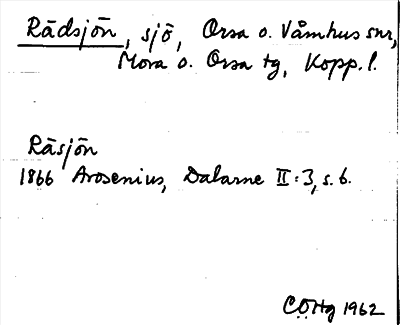 Rädsjön, sjö, Orsa o. Våmhus snr,
Mora o. Orsa tg, Kopp. l.
Räsjön
1866 Arosenius, Dalarne II:3, s. 6.
CÖHg 1962